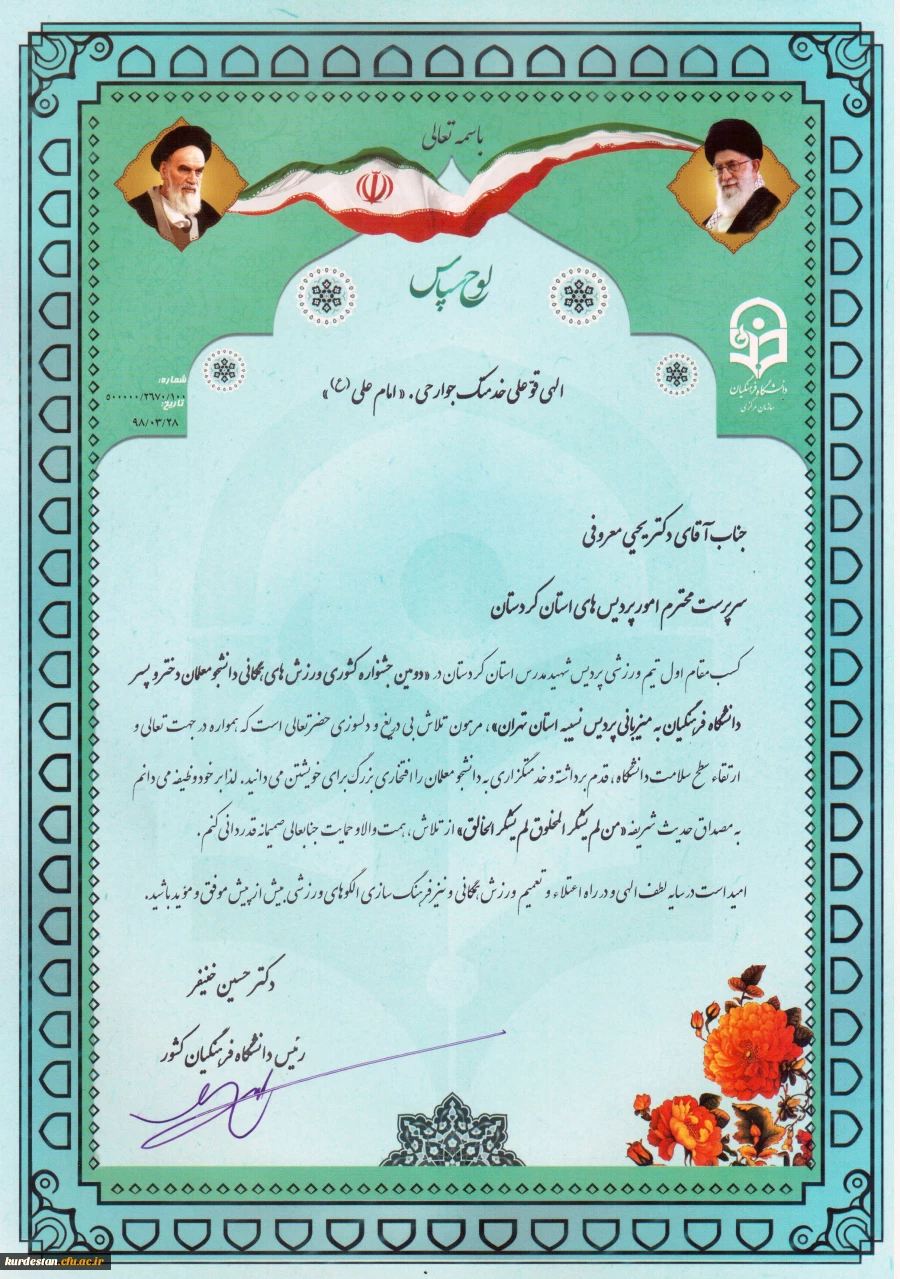 باسمه تعالی
لوح سپاس
دانشگاه فرهنگیان
سازمان مرکزی
شماره:
۵۰۰۰۰۰/۲۶۷۰/۱۰۰
تاریخ:
۹۸/۰۳/۲۸
الهی قو علی خدمتک جوارحی. «امام علی (ع)»
جناب آقای دکتر یحیی معروفی
سرپرست محترم امور پردیس های استان کردستان
کسب مقام اول تیم ورزشی پردیس شهید مدرس استان کردستان در «دومین جشنواره کشوری ورزش های همگانی دانشجو معلمان دختر و پسر
دانشگاه فرهنگیان به میزبانی پردیس نسیبه استان تهران»، مرهون تلاش بی دریغ و دلسوزی حضرتعالی است که همواره در جهت تعالی و
ارتقاء سطح سلامت دانشگاه، قدم برداشته و خدمتگزاری به دانشجو معلمان را افتخاری بزرگ برای خویشتن می دانید. لذا بر خود وظیفه می دانم
به مصداق حدیث شریفه «من لم یشکر المخلوق لم یشکر الخالق» از تلاش، همت والا و حمایت جنابعالی صمیمانه قدردانی کنم.
امید است در سایه لطف الهی و در راه اعتلاء و تعمیم ورزش همگانی و نیز فرهنگ سازی الگوهای ورزشی بیش از پیش موفق و مؤید باشید.
دکتر حسین خنیفر
رئیس دانشگاه فرهنگیان کشور
kurdestan.cfu.ac.ir